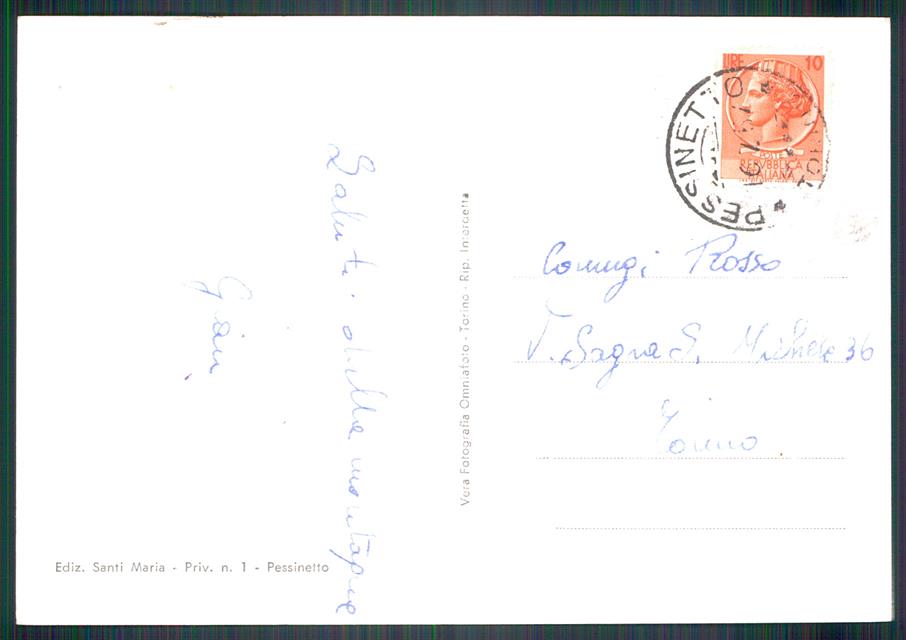 LIRE 10
POSTE
REPVBBLICA
ITALIANA
PESSINETTO
TORINO
Saluti dalla montagna
Gian
Coniugi Rosso
V. Sagra S. Michele 36
Torino
Vera Fotografia Omniafoto - Torino - Rip. Interdetta
Ediz. Santi Maria - Priv. n. 1 - Pessinetto